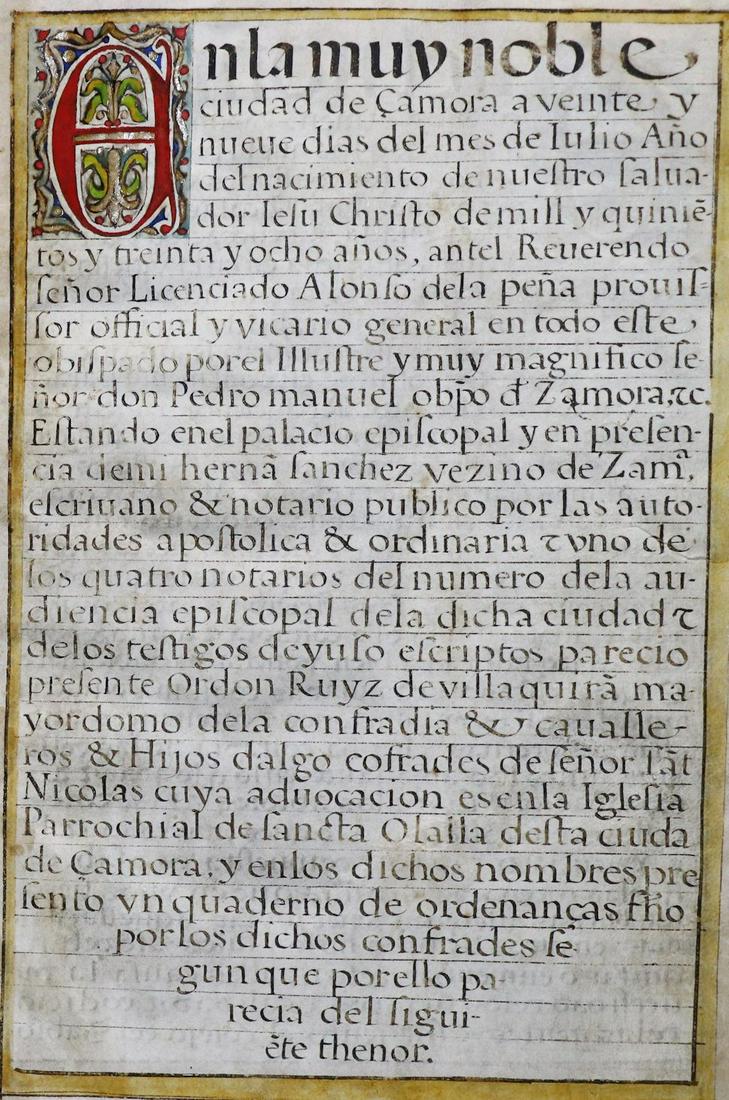 Enla muy noble
ciudad de Çamora a veinte y
nueue dias del mes de Iulio Año
del nacimiento de nuestro salua-
dor Iesu Christo de mill y quiniē-
tos y treinta y ocho años, antel Reuerendo
señor Licenciado Alonso dela peña prouis-
sor official y vicario general en todo este
obispado por el Illustre y muy magnifico se-
ñor don Pedro manuel obp̄o đ Zamora, ⁊c.
Estando enel palacio episcopal y en presen-
cia de mi hernā sanchez vezino de Zamª,
escriuano & notario publico por las auto-
ridades apostolica & ordinaria ⁊ vno de
los quatro notarios del numero dela au-
diencia episcopal dela dicha ciudad ⁊
delos testigos deyuso escriptos parecio
presente Ordon Ruyz de villaquirā ma-
yordomo dela confradia & caualle-
ros & Hijos dalgo cofrades de señor sāt
Nicolas cuya aduocacion es enla Iglesia
Parrochial de sancta Olalla desta ciuda
de Çamora, y enlos dichos nombres pre
sento vn quaderno de ordenanças fh̄o
por los dichos confrades se
gun que por ello pa-
recia del sigui-
ēte thenor.